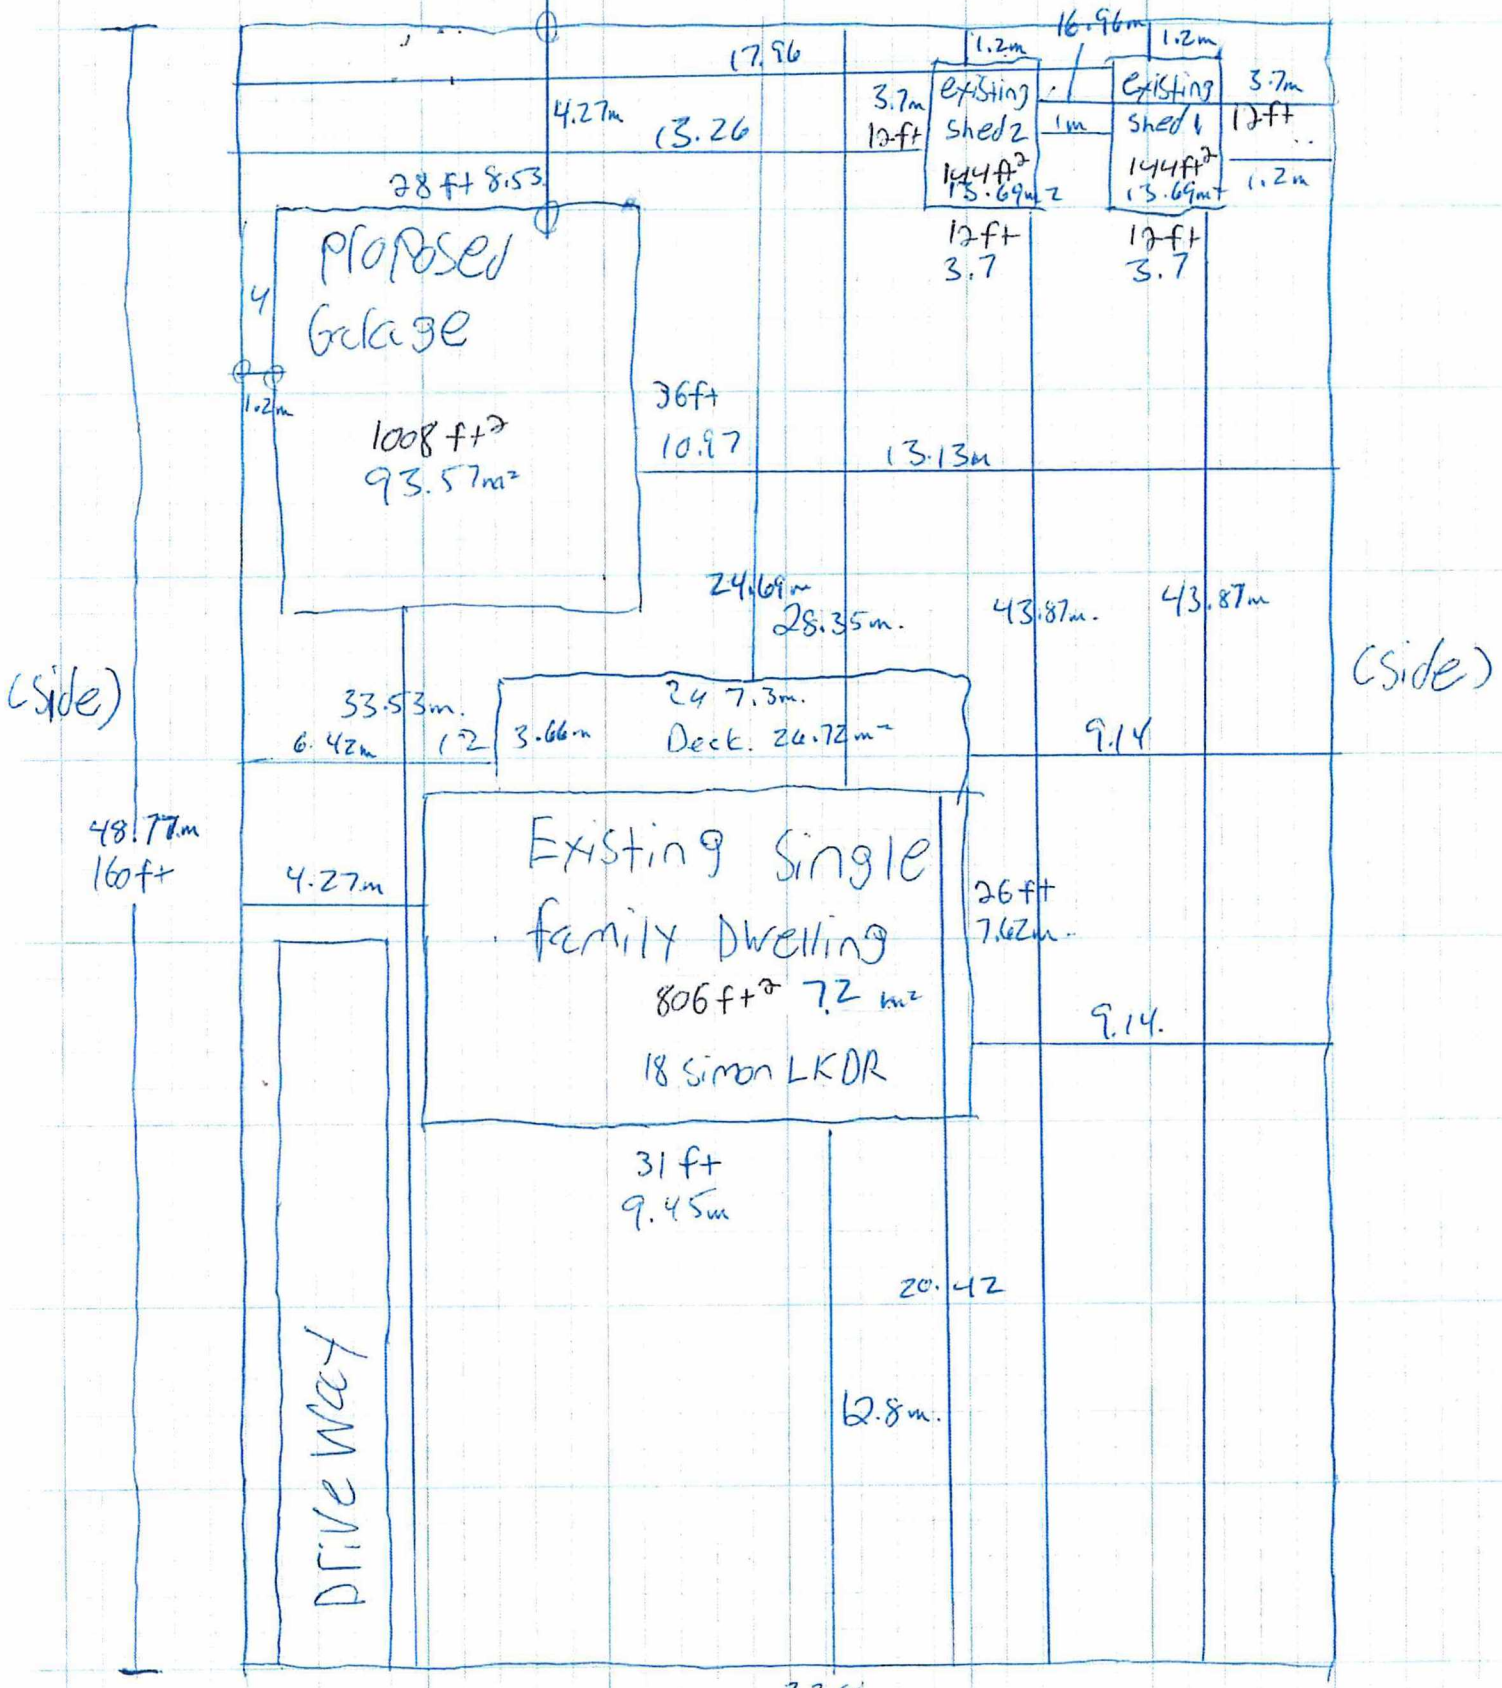 16.96m
1.2m
1.2m
17.96
4.27m
13.26
3.7m
12ft
existing
shed 2
144ft²
13.69m2
1m
existing
shed 1
144ft²
13.69m2
3.7m
12ft
1.2m
28ft 8.53
12ft
3.7
12ft
3.7
Proposed
Garage
4
1.2m
1008 ft²
93.57m²
36ft
10.97
13.13m
24.69m
28.35m.
43.87m.
43.87m
(side)
(side)
33.53m.
6.42m
12
3.66m
24 7.3m.
Deck. 26.72m²
9.14
48.77m
160ft
4.27m
Existing Single
family Dwelling
806ft² 72 m²
18 Simon LKDR
26ft
7.62m.
9.14.
31 ft
9.45m
20.42
12.8m.
Driveway